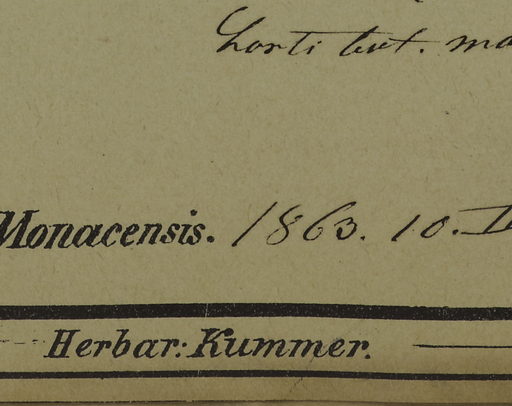 horti bot. mo
Monacensis. 1863. 10. I
Herbar: Kummer.